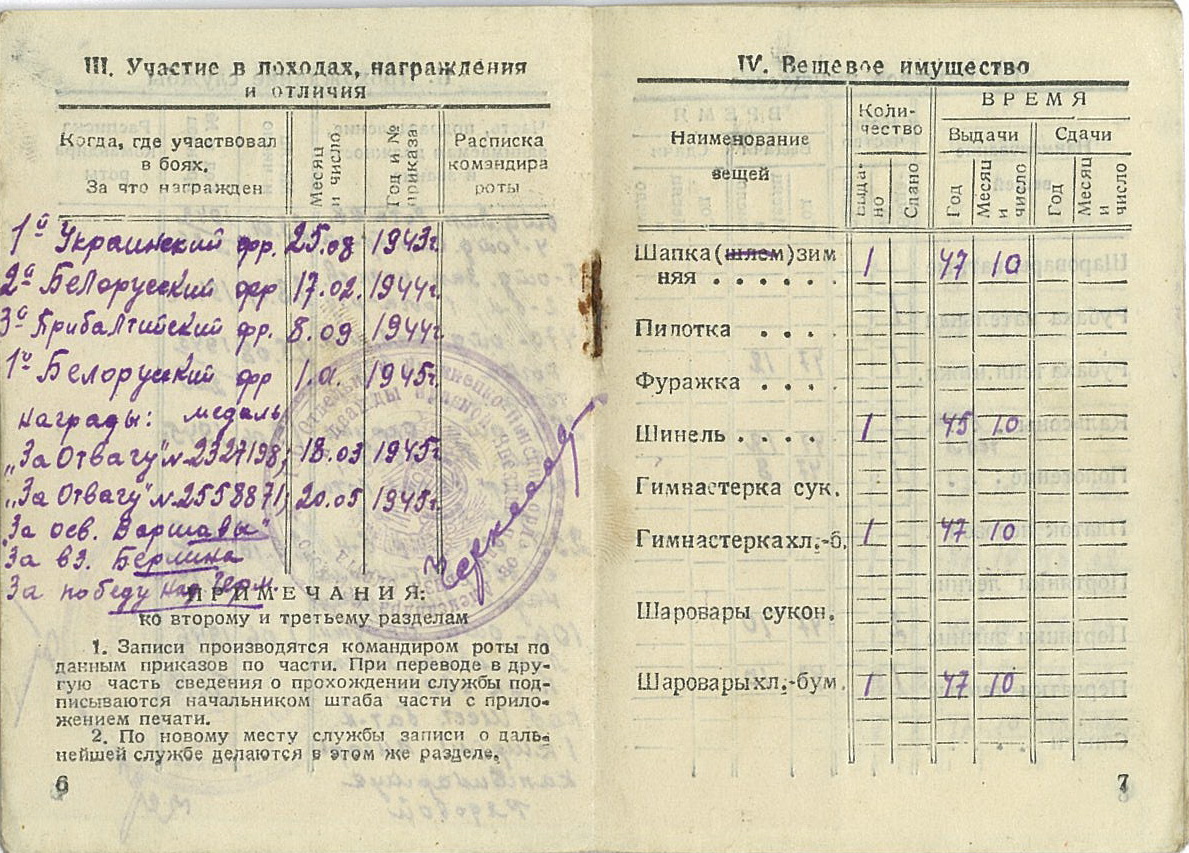 III. Участие в походах, награждения
и отличия
Когда, где участвовал
в боях.
За что награжден
Месяц
и число
Год и №
приказа
Расписка
командира
роты
1й Украинский фр. 25.08 1943г.
2й Белорусский фр 17.02. 1944г.
3й Прибалтийский фр. 8.09. 1944г.
1й Белорусский фр 1945г.
Награды: медаль
„За Отвагу" № 2327198, 18.03 1945г.
„За Отвагу" № 2558871, 20.05 1945г.
За осв. Варшавы"
За вз. Берлина
За победу над Герм.
ПРИМЕЧАНИЯ:
ко второму и третьему разделам
1. Записи производятся командиром роты по
данным приказов по части. При переводе в дру-
гую часть сведения о прохождении службы под-
писываются начальником штаба части с прило-
жением печати.
2. По новому месту службы записи о даль-
нейшей службе делаются в этом же разделе.
6
IV. Вещевое имущество
Наименование
вещей
Коли-
чество
выда-
но
Сдано
ВРЕМЯ
Выдачи
Сдачи
Год
Месяц
и
число
Год
Месяц
и
число
Шапка (шлем) зим
няя . . . . . . 1 47 10
Пилотка . . .
Фуражка . . . .
Шинель . . . . . 1 45 10
Гимнастерка сук.
Гимнастерка хл.-б. 1 47 10
Шаровары сукон.
Шаровары хл.-бум. 1 47 10
7